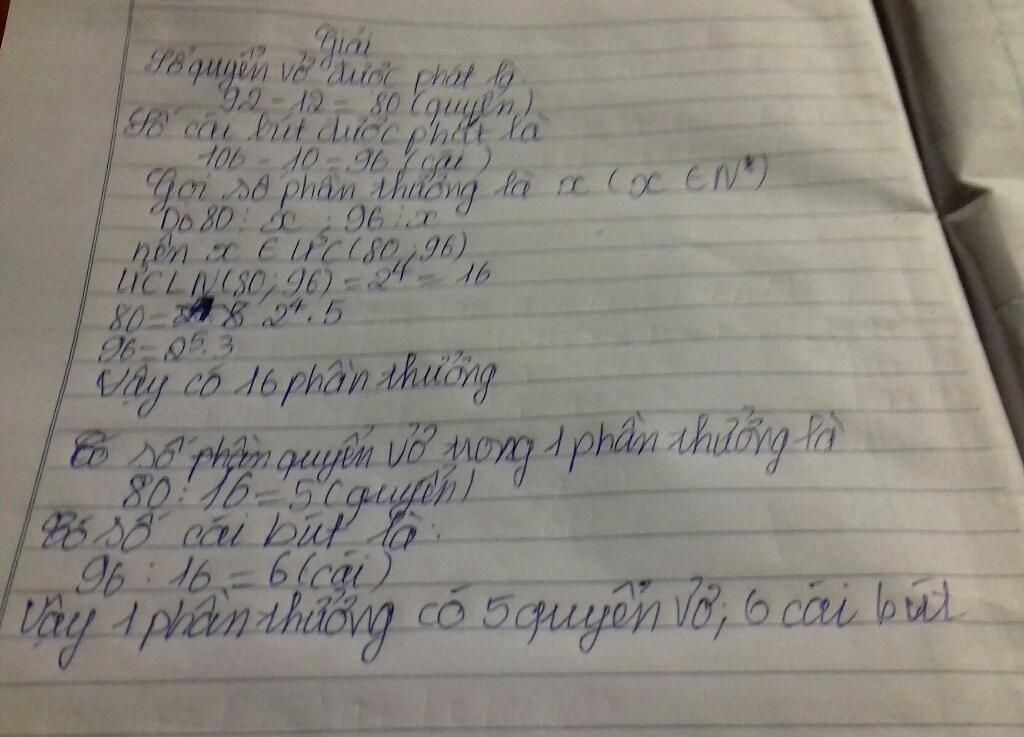 Giải
Số quyển vở được phát là
92 - 12 = 80 (quyển)
Số cái bút được phát là
106 - 10 = 96 (cái)
Gọi số phần thưởng là x (x ∈ N*)
Do 80 ⋮ x ; 96 ⋮ x
nên x ∈ ƯC(80; 96)
ƯCLN(80; 96) = 2⁴ = 16
80 = 2⁴. 5
96 = 2⁵. 3
Vậy có 16 phần thưởng
Có số phần quyển vở trong 1 phần thưởng là
80 : 16 = 5 (quyển)
Có số cái bút là:
96 : 16 = 6 (cái)
Vậy 1 phần thưởng có 5 quyển vở; 6 cái bút